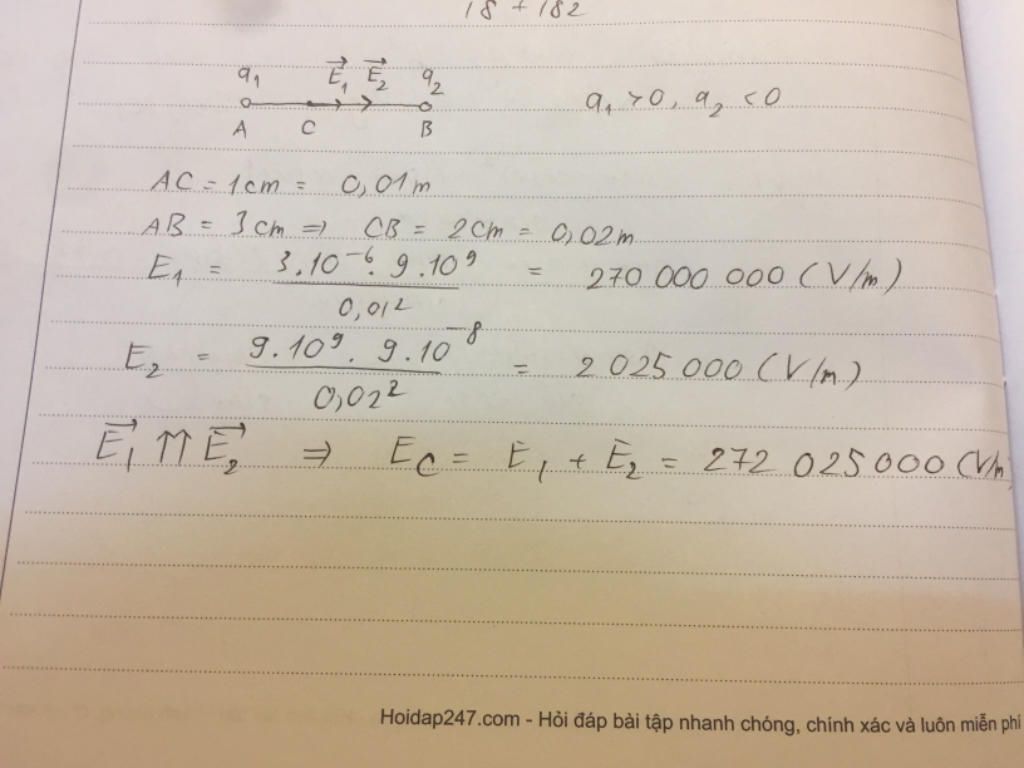 18 + 182
q₁ E⃗₁ E⃗₂ q₂
A C B
q₁ > 0, q₂ < 0
AC = 1cm = 0,01m
AB = 3cm ⇒ CB = 2cm = 0,02m
E₁ = 3.10⁻⁶. 9.10⁹ / 0,01² = 270 000 000 (V/m)
E₂ = 9.10⁹. 9.10⁻⁸ / 0,02² = 2 025 000 (V/m)
E⃗₁ ⇈ E⃗₂ ⇒ E_C = E₁ + E₂ = 272 025 000 (V/m)
Hoidap247.com - Hỏi đáp bài tập nhanh chóng, chính xác và luôn miễn phí